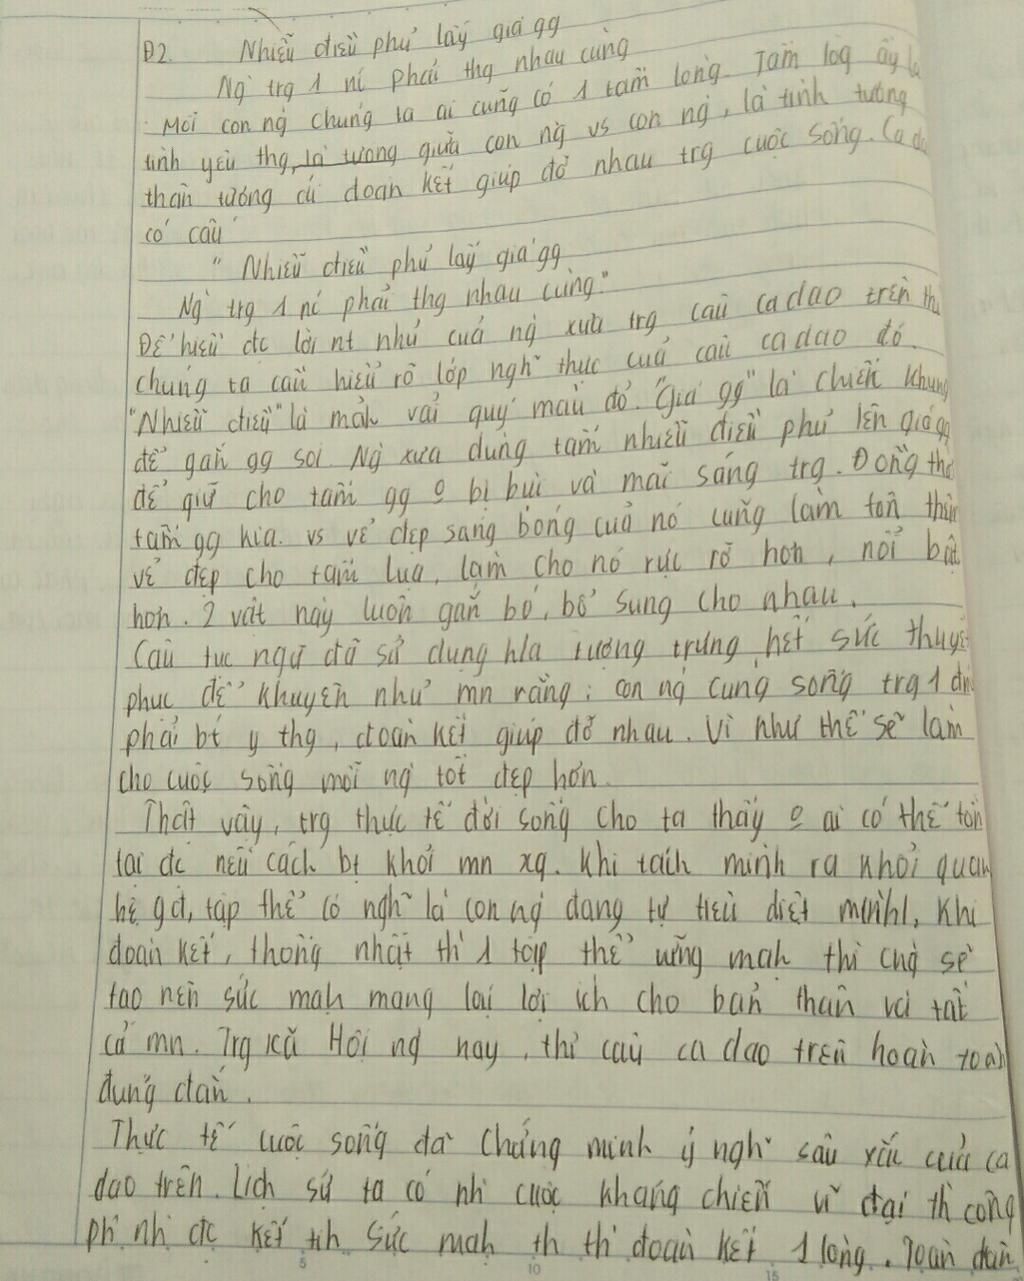 Đ2. Nhiễu điều phủ lấy giá gg
Ng trg 1 nc phải thg nhau cùng
Mỗi con ng chúng ta ai cũng có 1 tấm lòng. Tấm lòg ấy là
tình yêu thg, là tương giữa con ng vs con ng, là tinh tương
thân tương ái đoàn kết giúp đỡ nhau trg cuộc sống. Ca dao
có câu
"Nhiễu điều phủ lấy giá gg
Ng trg 1 nc phải thg nhau cùng"
Để hiểu đc lời nt nhủ của ng xưa trg câu ca dao trên thì
chúng ta cần hiểu rõ lớp nghĩ thực của câu ca dao đó.
"Nhiễu điều" là mảh vải quý màu đỏ. "Giá gg" là chiếc khung
để gắn gg soi. Ng xưa dùng tấm nhiễu điều phủ lên giá gg
để giữ cho tấm gg o bị bụi và mãi sáng trg. Đồng thờ
tấm gg kia vs vẻ đẹp sáng bóng của nó cũng làm tôn thêm
vẻ đẹp cho tấm lụa, làm cho nó rực rỡ hơn, nổi bật
hơn. 2 vật này luôn gắn bó, bổ sung cho nhau.
Câu tục ngữ đã sử dụng h/a tượng trưng hết sức thuyế
phục để khuyên nhủ mn rằng: con ng cùng sống trg 1 đn
phải bt y thg, đoàn kết giúp đỡ nhau. Vì như thế sẽ làm
cho cuộc sống mỗi ng tốt đẹp hơn.
Thật vậy, trg thực tế đời sống cho ta thấy o ai có thể tồn
tại đc nếu cách bt khỏi mn xq. Khi tách mình ra khỏi quan
hệ gđ, tập thể có nghĩ là con ng đang tự tiêu diệt mình. Khi
đoàn kết, thống nhất thì 1 tập thể vững mạh thì cng sẽ
tạo nên sức mạh mang lại lợi ích cho bản thân và tất
cả mn. Trg xã Hội ng nay, thì câu ca dao trên hoàn toàn
đúng đắn.
Thực tế cuộc sống đã chứng minh ý nghĩ sâu xắc của ca
dao trên. Lịch sử ta có nh cuộc kháng chiến vĩ đại th công
ph nh đc kết tih sức mạh th thì đoàn kết 1 lòng. Toàn dân
5 10 15